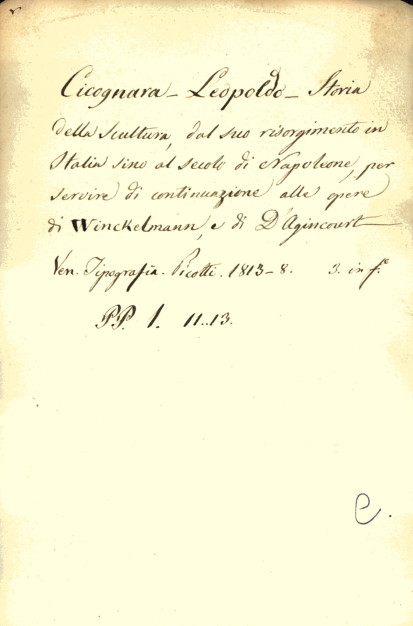 Cicognara - Leopoldo - Storia
della scultura, dal suo risorgimento in
Italia sino al secolo di Napoleone, per
servire di continuazione alle opere
di Winckelmann, e di D'Agincourt
Ven. Tipografia. Picotti. 1813-8. 3. in f.º
PP. 1. 11..13.
C.